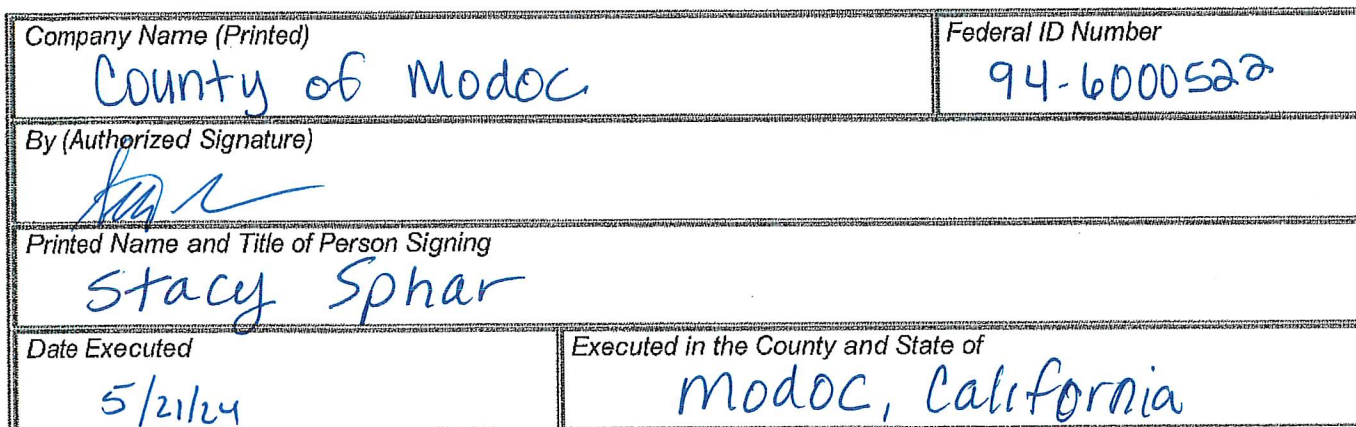 Company Name (Printed)
County of Modoc
Federal ID Number
94-6000522
By (Authorized Signature)
Printed Name and Title of Person Signing
Stacy Sphar
Date Executed
5/21/24
Executed in the County and State of
Modoc, California